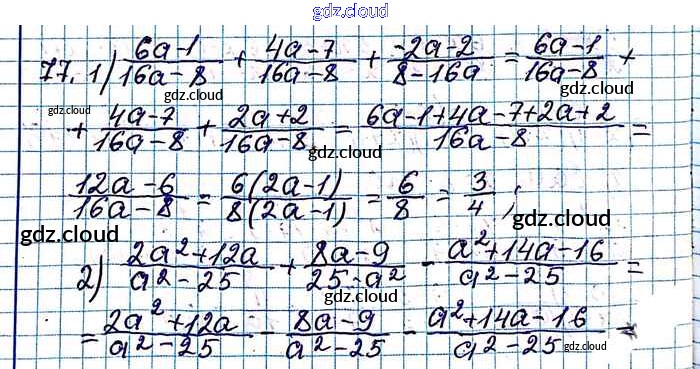 gdz.cloud
77. 1) (6a-1)/(16a-8) + (4a-7)/(16a-8) + (-2a-2)/(8-16a) = (6a-1)/(16a-8) +
gdz.cloud gdz.cloud
+ (4a-7)/(16a-8) + (2a+2)/(16a-8) = (6a-1+4a-7+2a+2)/(16a-8) =
gdz.cloud gdz.cloud gdz.cloud
(12a-6)/(16a-8) = (6(2a-1))/(8(2a-1)) = 6/8 = 3/4 ;
gdz.cloud gdz.cloud gdz.cloud
2) (2a²+12a)/(a²-25) + (8a-9)/(25-a²) - (a²+14a-16)/(a²-25) =
gdz.cloud
= (2a²+12a)/(a²-25) - (8a-9)/(a²-25) - (a²+14a-16)/(a²-25) =
gdz.cloud gdz.cloud